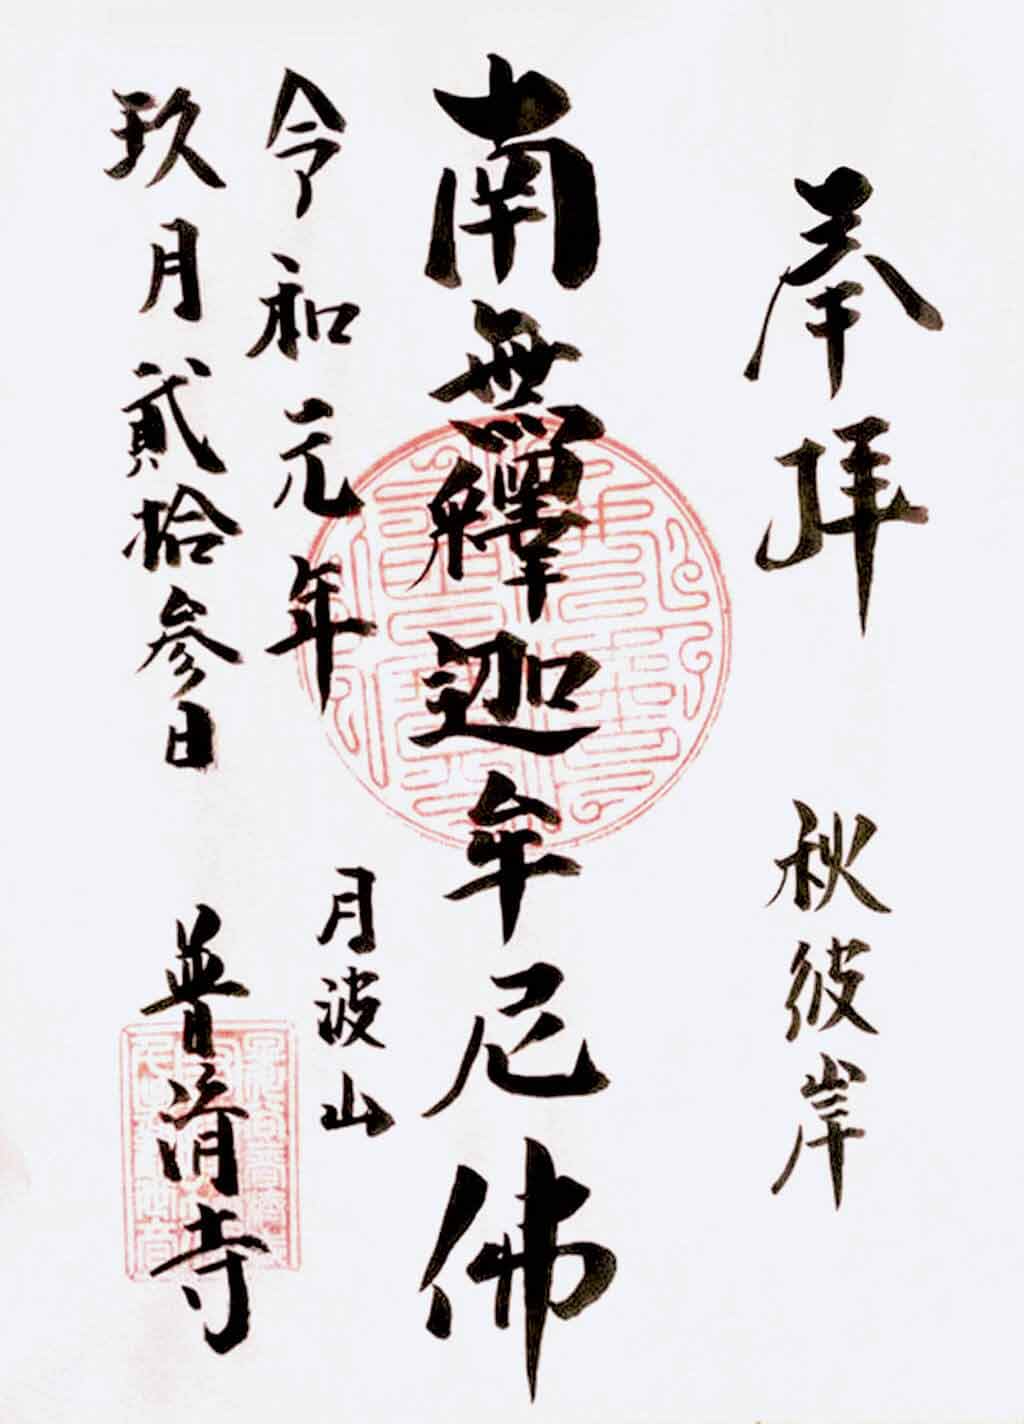 奉拝
秋彼岸
南無釋迦牟尼佛
令和元年
玖月貳拾参日
月波山
普済寺